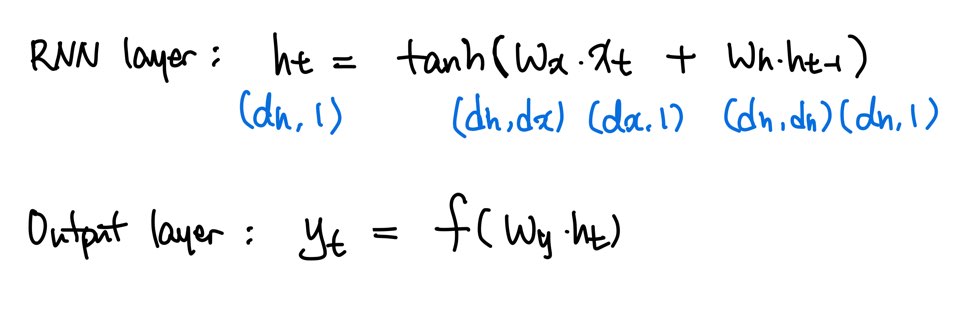 RNN layer : ht = tanh(Wx·xt + Wh·ht-1)
(dh, 1) (dh, dx) (dx, 1) (dh, dh) (dh, 1)
Output layer : yt = f(Wy·ht)